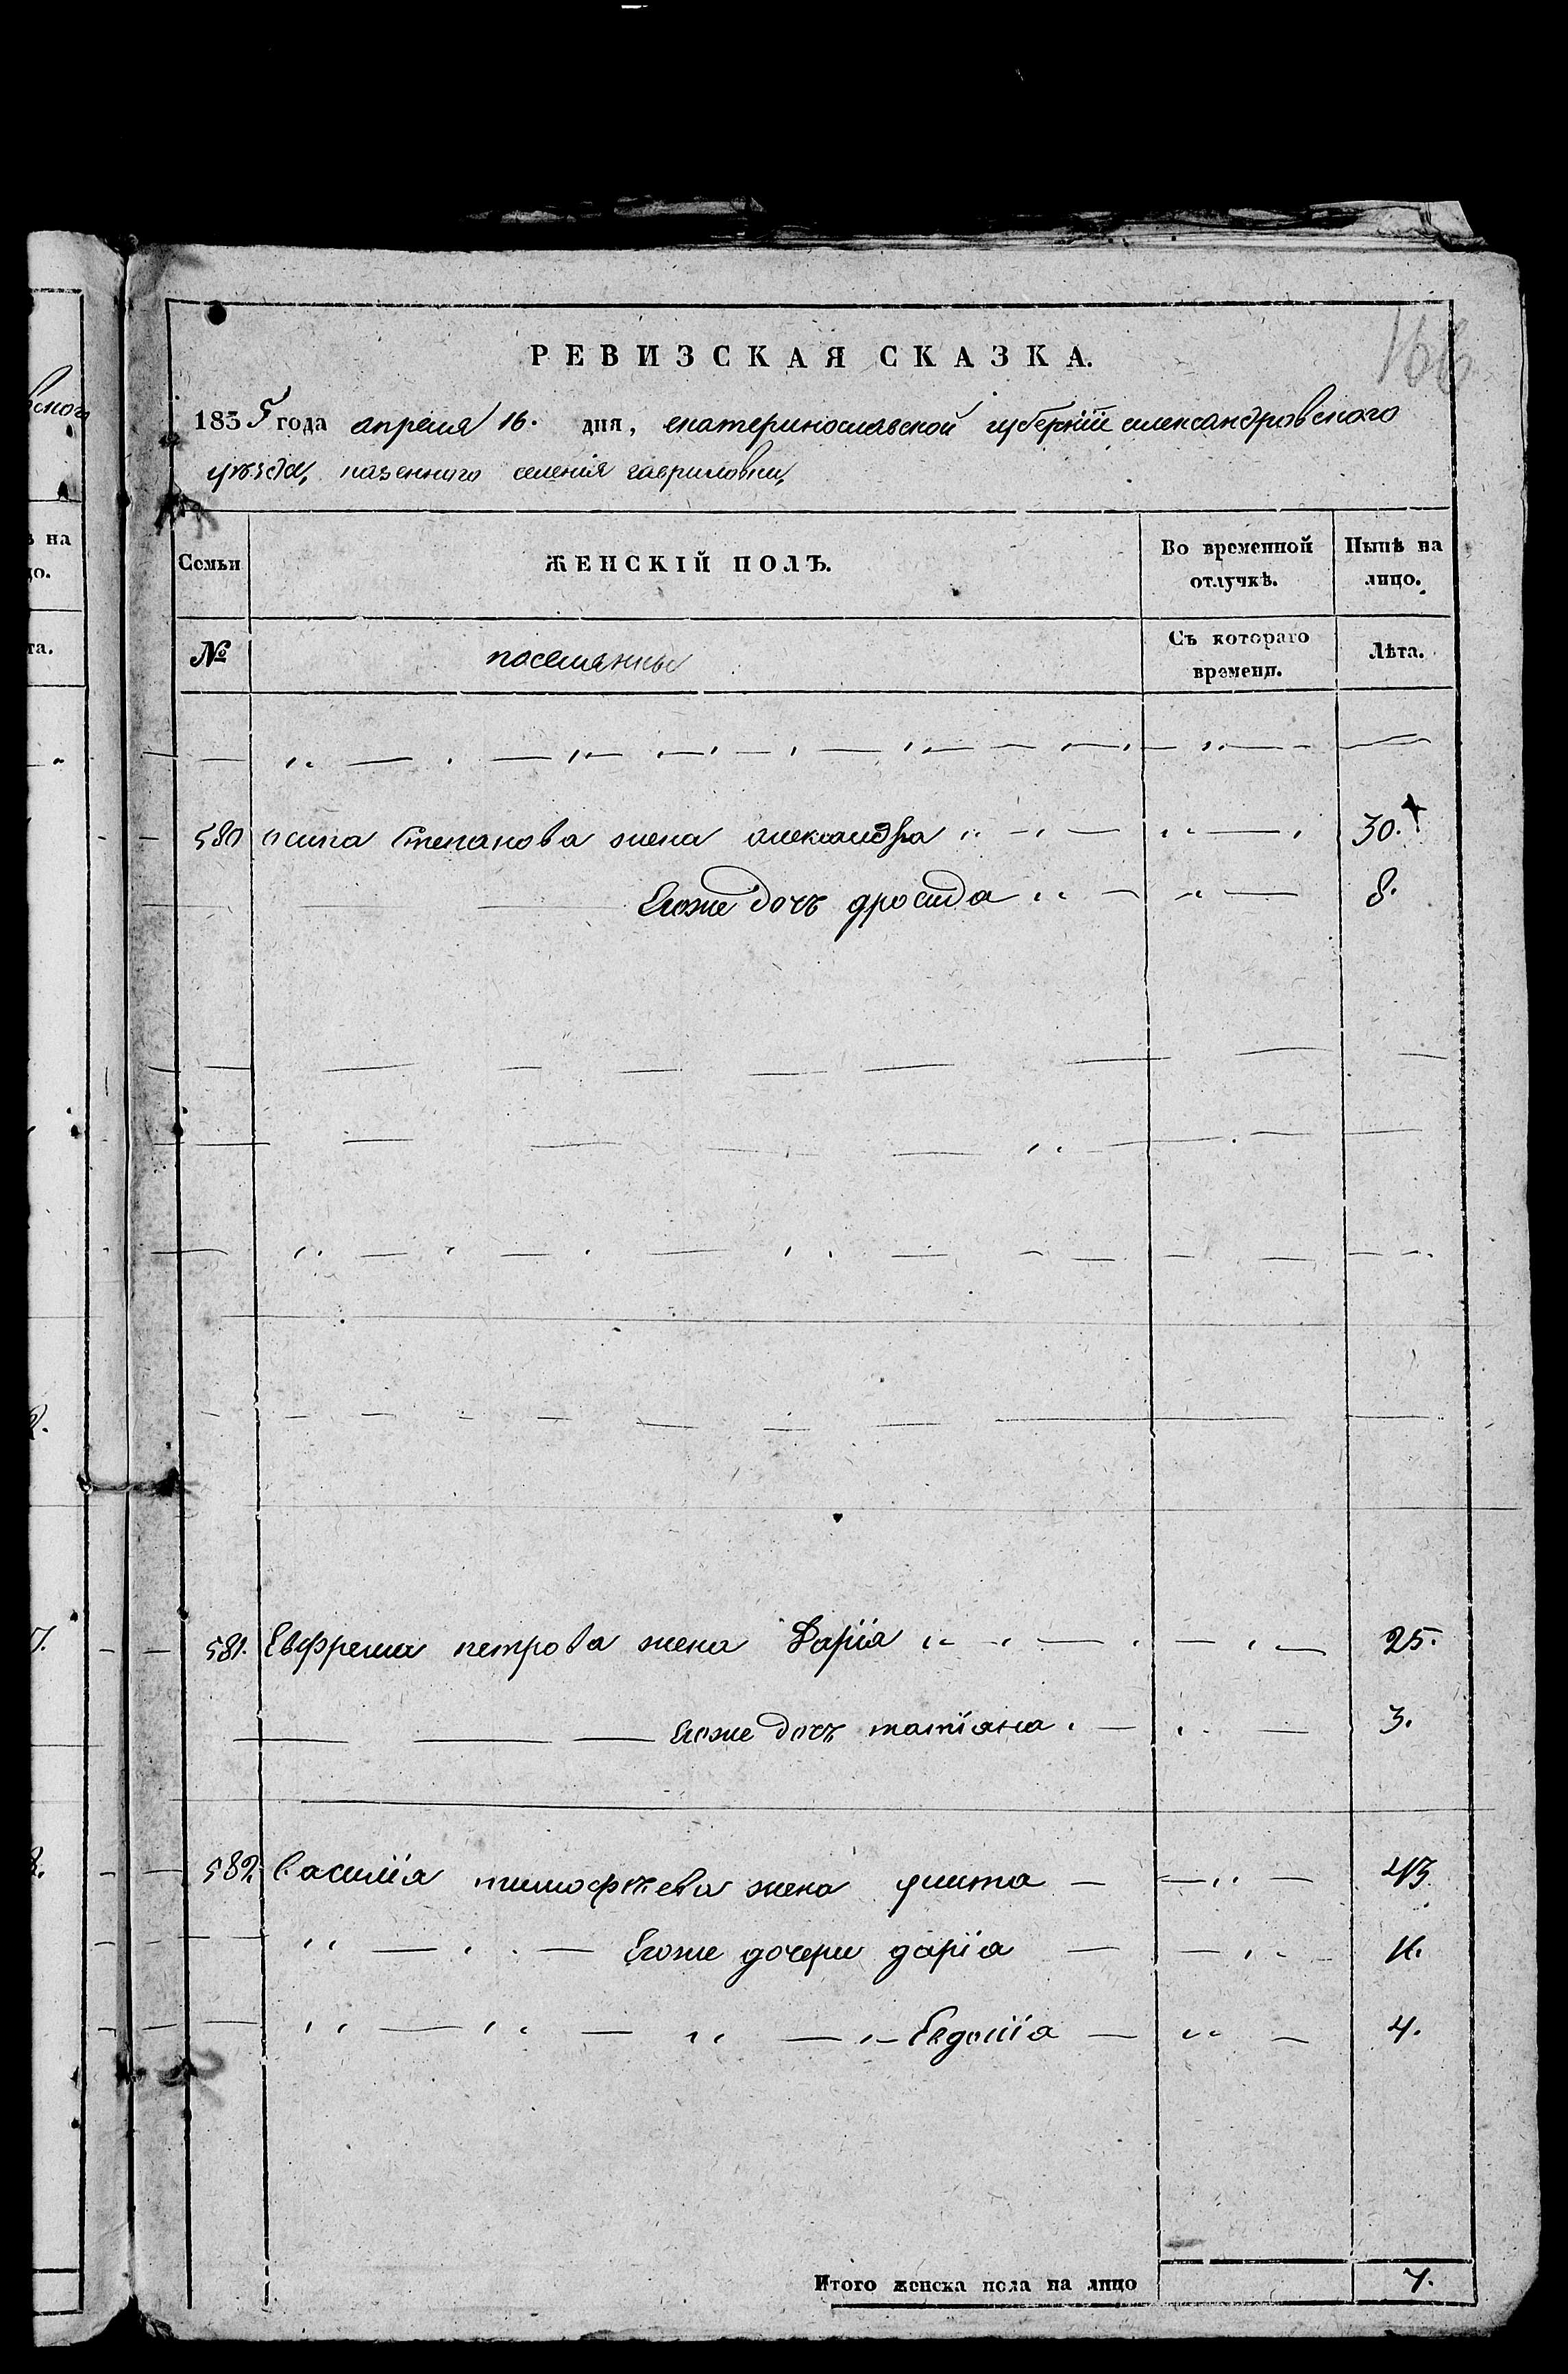 166
РЕВИЗСКАЯ СКАЗКА.
1835 года апреля 16. дня, екатеринославской губерніи александровского
уѣзда, казенного селенія гавриловки,
Семьи
ЖЕНСКІЙ ПОЛЪ.
Во временной отлучкѣ.
Нынѣ на лицо.
№
поселянки
Съ котораго времени.
Лѣта.
580 осипа Степанова жена александра 30.
Егоже дочъ дросида 8.
581. Евфрема петрова жена Дарія 25.
Егоже дочъ татіяна 3.
582. василіа тимофѣева жена улита 43.
Егоже дочери даріа 11.
Евдокіа 4.
Итого женска пола на лицо 7.